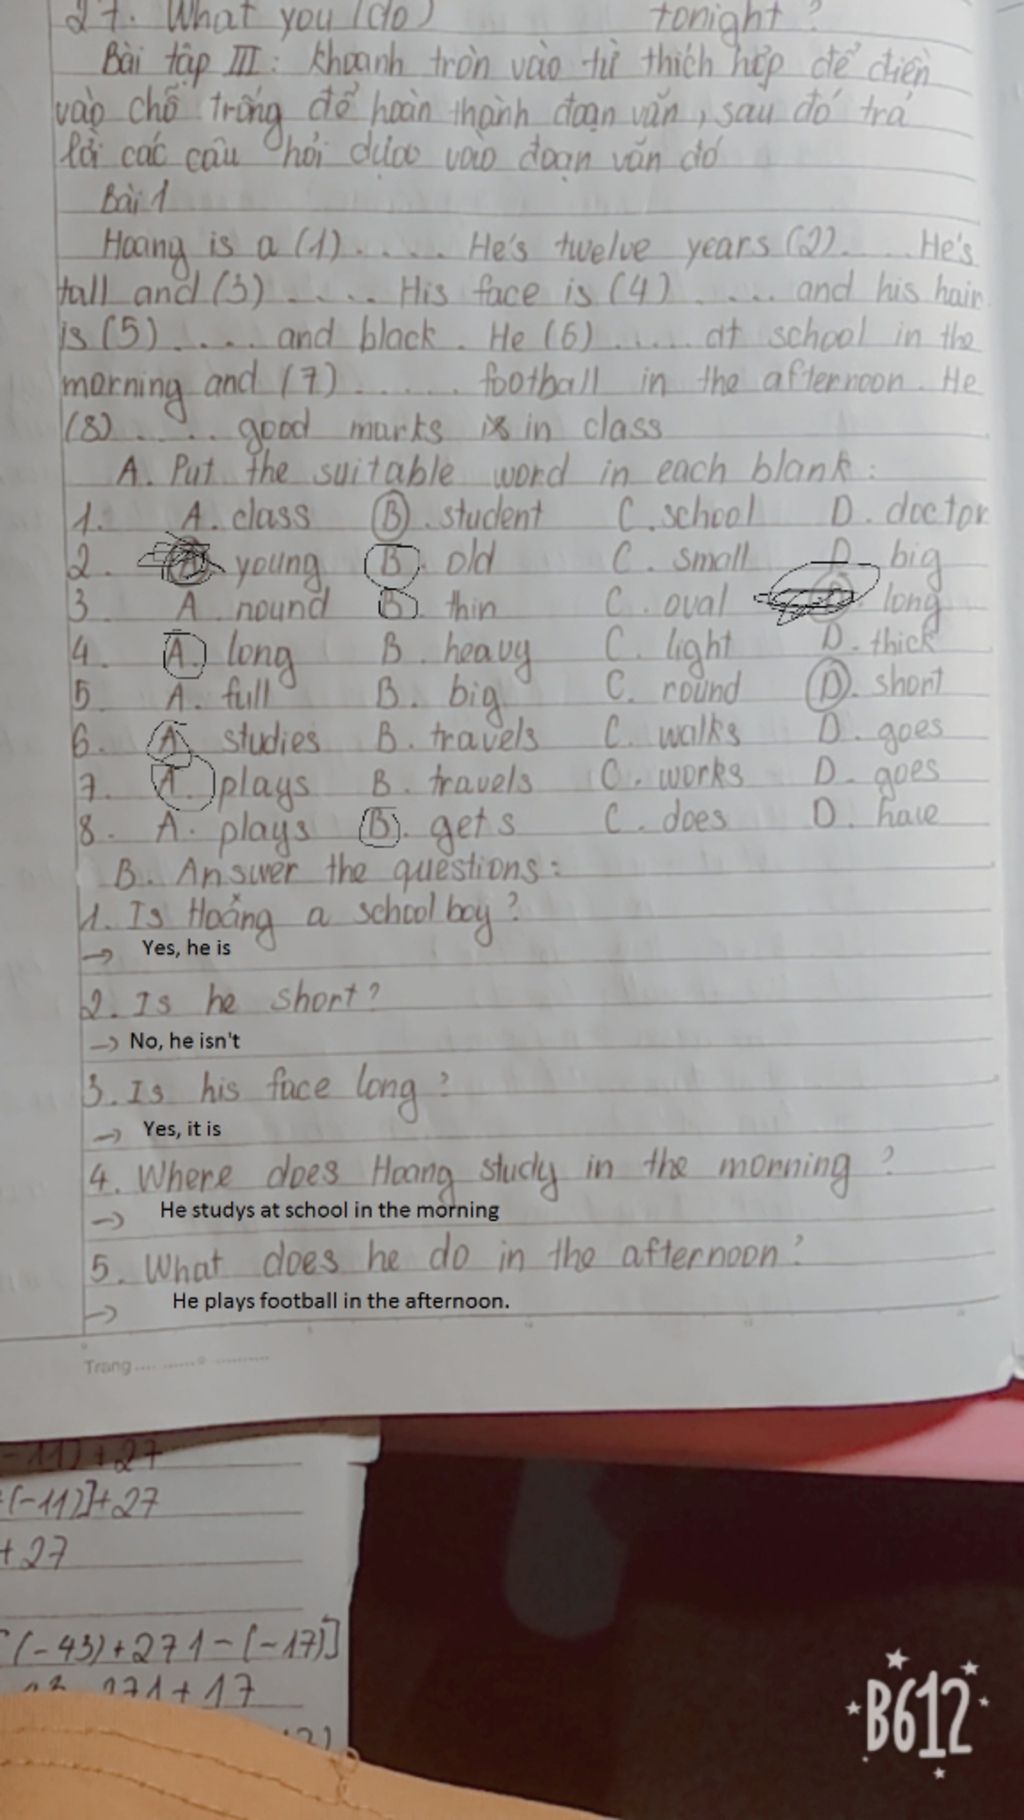 27. What you (do) tonight?
Bài tập III: Khoanh tròn vào từ thích hợp để điền
vào chỗ trống để hoàn thành đoạn văn, sau đó trả
lời các câu hỏi dựa vào đoạn văn đó
Bài 1
Hoang is a (1)..... He's twelve years (2).... He's
tall and (3)..... His face is (4)..... and his hair
is (5)..... and black. He (6)..... at school in the
morning and (7)..... football in the afternoon. He
(8)..... good marks in class
A. Put the suitable word in each blank:
1. A. class B. student C. school D. doctor
2. A. young B. old C. small D. big
3. A. round B. thin C. oval D. long
4. A. long B. heavy C. light D. thick
5 A. full B. big C. round D. short
6. A. studies B. travels C. walks D. goes
7. A. plays B. travels C. works D. goes
8. A. plays B. gets C. does D. have
B. Answer the questions:
1. Is Hoàng a school boy?
→ Yes, he is
2. Is he short?
→ No, he isn't
3. Is his face long?
→ Yes, it is
4. Where does Hoang study in the morning?
→ He studys at school in the morning
5. What does he do in the afternoon?
→ He plays football in the afternoon.
Trang.............
-11)+27
+(-11)]+27
+27
[(-43)+271-(-17)]
271+17
B612